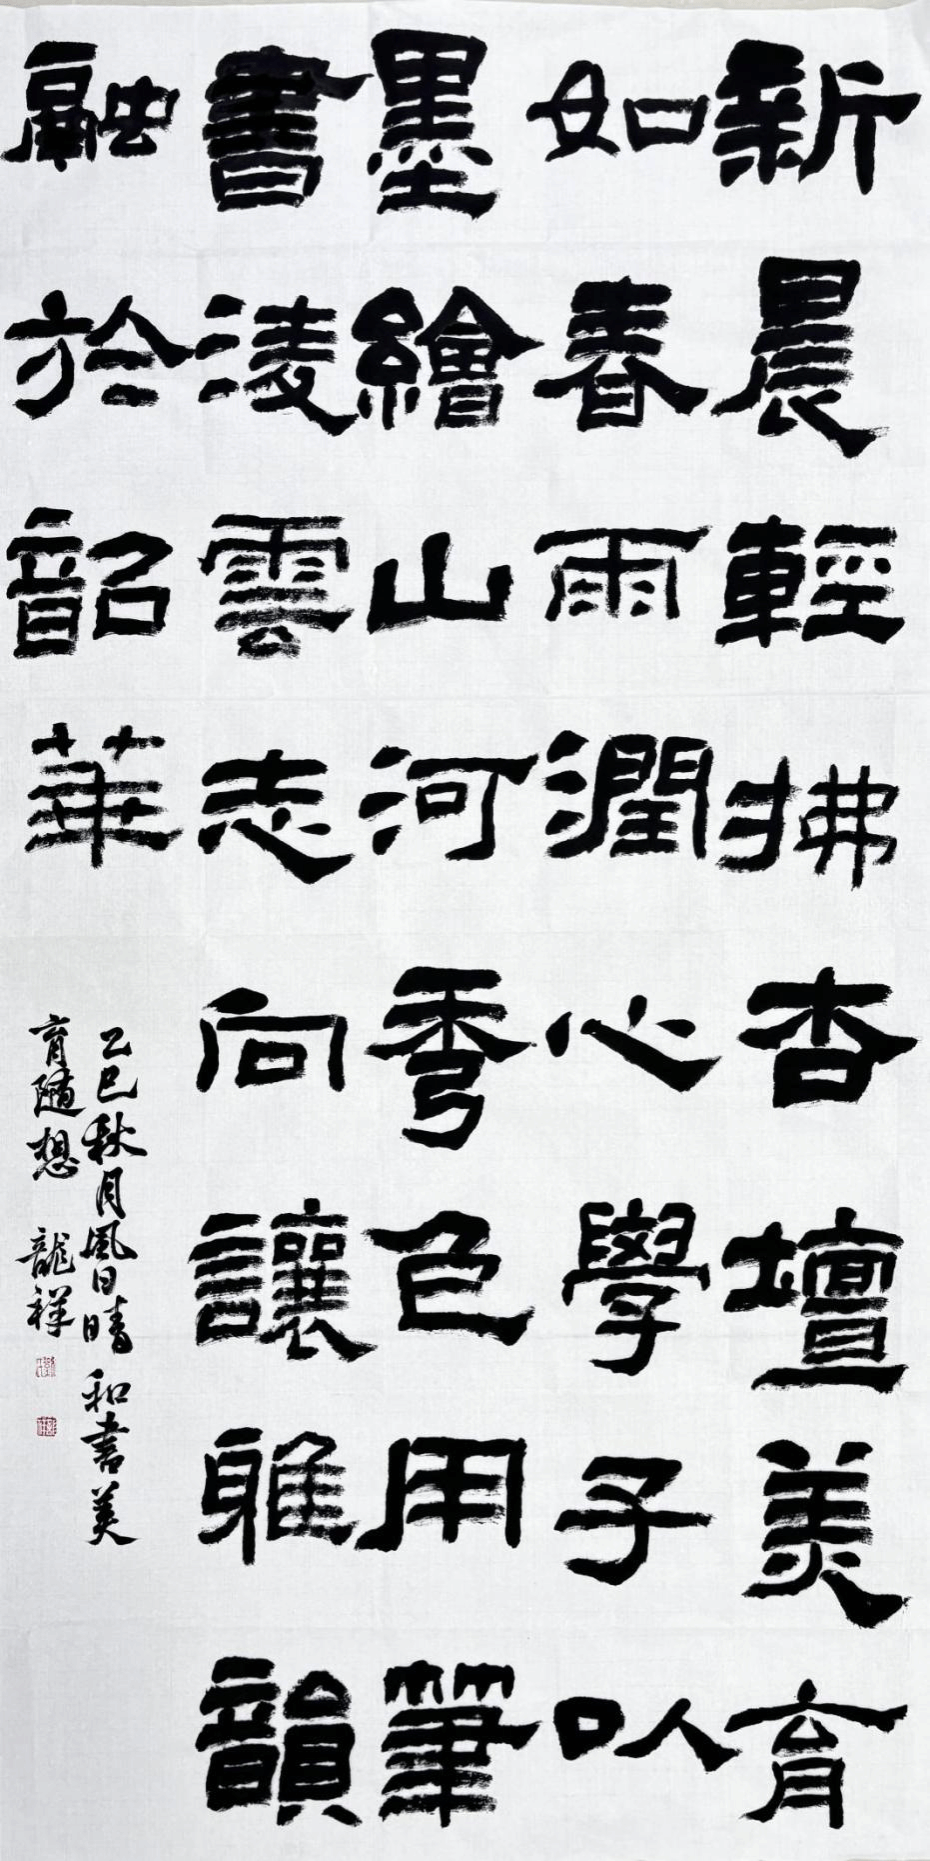 新晨輕拂杏壇美育
如春雨潤心學子以
墨繪山河秀色用筆
書淩雲志向讓雅韻
融於韶華
乙巳秋月風日晴和書美
育隨想 龍祥